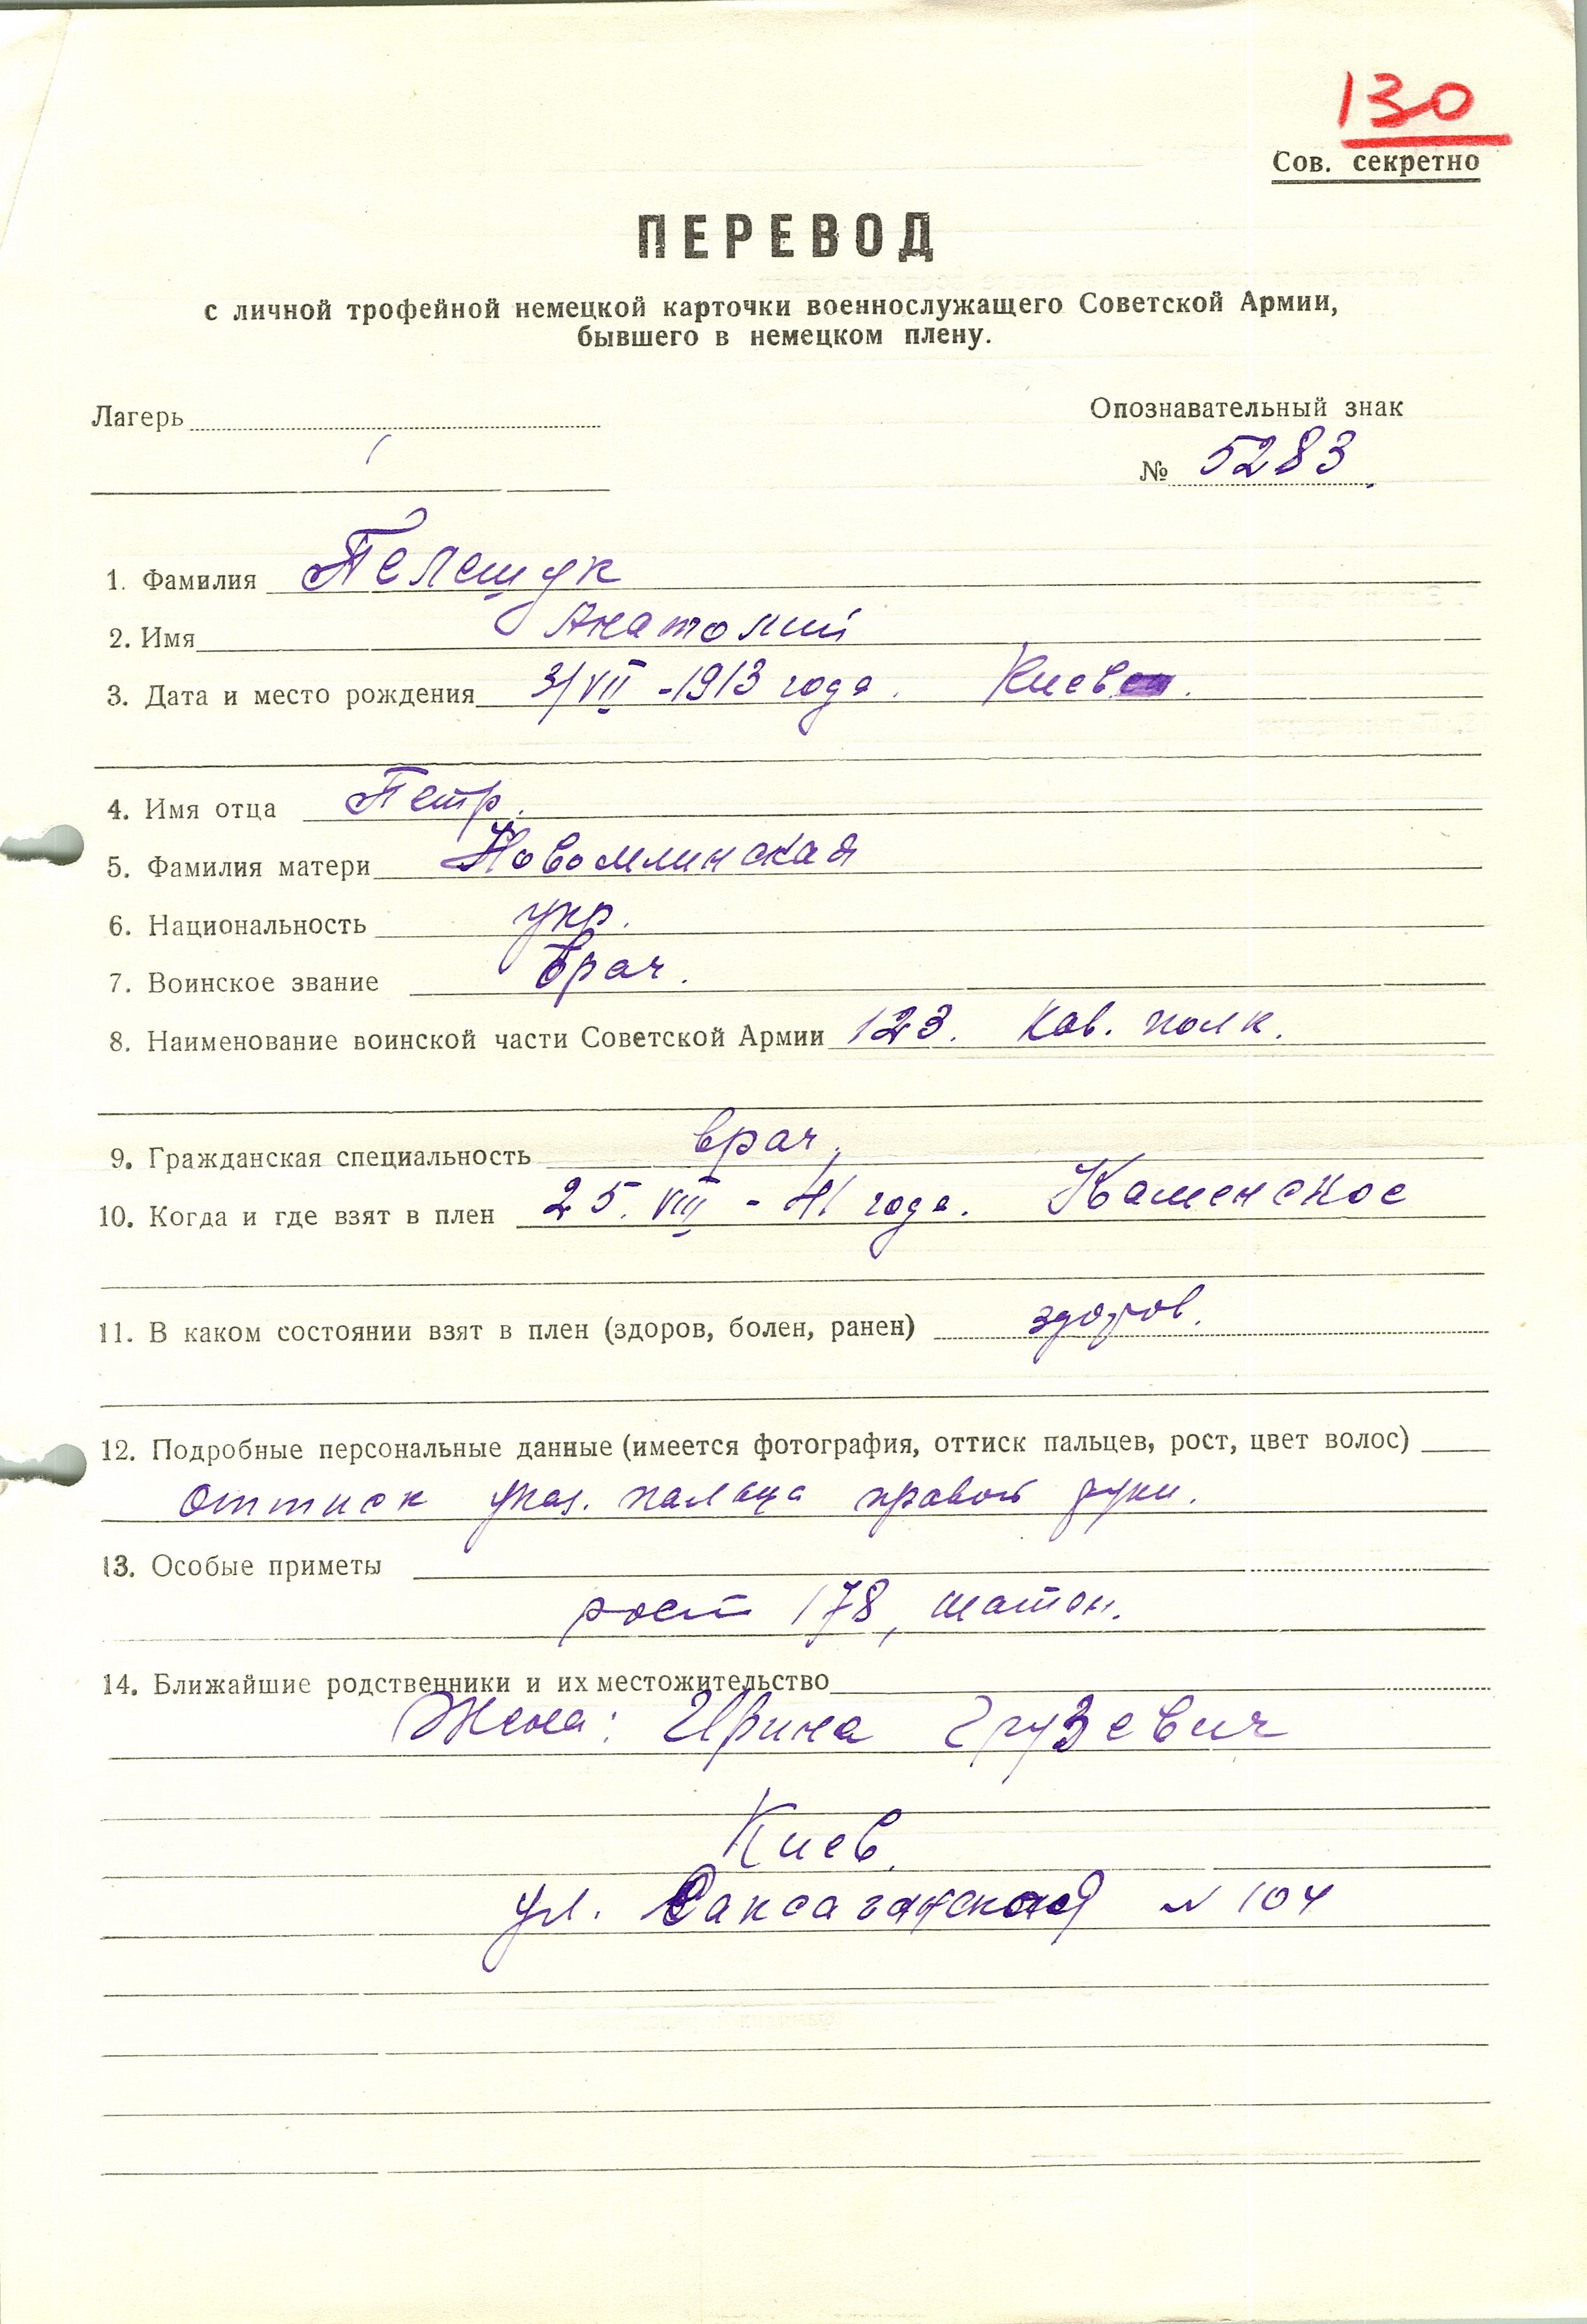 130
Сов. секретно
ПЕРЕВОД
с личной трофейной немецкой карточки военнослужащего Советской Армии,
бывшего в немецком плену.
Лагерь
Опознавательный знак
№ 5283
1. Фамилия Пелещук
2. Имя Анатолий
3. Дата и место рождения 3/VII - 1913 года. Киев
4. Имя отца Петр.
5. Фамилия матери Новомлинская
6. Национальность укр.
7. Воинское звание врач.
8. Наименование воинской части Советской Армии 123. кав. полк.
9. Гражданская специальность врач,
10. Когда и где взят в плен 25. VIII - 41 года. Каменское
11. В каком состоянии взят в плен (здоров, болен, ранен) здоров.
12. Подробные персональные данные (имеется фотография, оттиск пальцев, рост, цвет волос)
оттиск указ. пальца правой руки.
13. Особые приметы
рост 178, шатен.
14. Ближайшие родственники и их местожительство
Жена: Ирина Грузевич
Киев.
ул. Саксаганская № 104